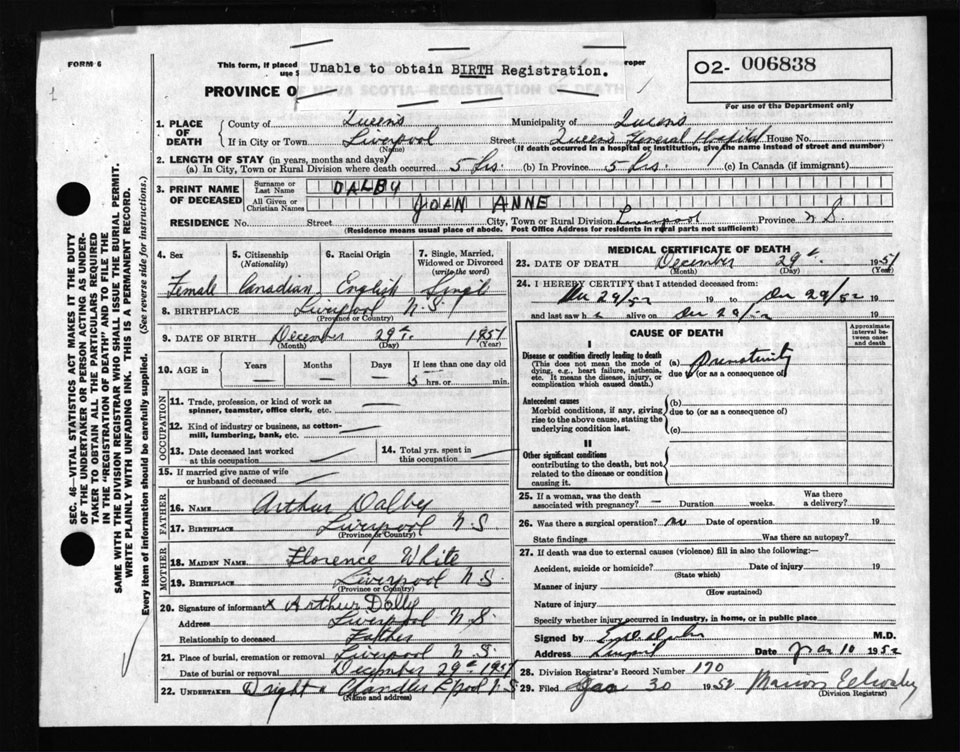 FORM 6
This form, if placed
use
Unable to obtain BIRTH Registration.
roper
PROVINCE O
F NOVA SCOTIA—REGISTRATION OF DEATH
O2- 006838
For use of the Department only
1. PLACE OF DEATH
County of Queens Municipality of Queens
If in City or Town Liverpool Street Queens General Hospital House No.
(Name) (If death occurred in a hospital or institution, give the name instead of street and number)
2. LENGTH OF STAY (in years, months and days)
(a) In City, Town or Rural Division where death occurred 5 hrs. (b) In Province 5 hrs. (c) In Canada (if immigrant)
3. PRINT NAME OF DECEASED
Surname or Last Name DALBY
All Given or Christian Names JOAN ANNE
RESIDENCE No. Street City, Town or Rural Division Liverpool Province N.S.
(Residence means usual place of abode. Post Office Address for residents in rural parts not sufficient)
4. Sex Female
5. Citizenship (Nationality) Canadian
6. Racial Origin English
7. Single, Married, Widowed or Divorced (write the word) Single
8. BIRTHPLACE Liverpool N.S.
(Province or Country)
9. DATE OF BIRTH December 29th. 1951
(Month) (Day) (Year)
10. AGE in Years Months Days If less than one day old
— — — 5 hrs. or min.
OCCUPATION
11. Trade, profession, or kind of work as spinner, teamster, office clerk, etc. —
12. Kind of industry or business, as cotton-mill, lumbering, bank, etc. —
13. Date deceased last worked at this occupation
14. Total yrs. spent in this occupation
15. If married give name of wife or husband of deceased
FATHER
16. NAME Arthur Dalbey
17. BIRTHPLACE Liverpool N.S
(Province or Country)
MOTHER
18. MAIDEN NAME Florence White
19. BIRTHPLACE Liverpool N.S.
(Province or Country)
20. Signature of informant x Arthur Dalby
Address Liverpool N.S.
Relationship to deceased Father
21. Place of burial, cremation or removal Liverpool N.S
Date of burial or removal December 29th 1951
22. UNDERTAKER Wright & Chandler L'pool N.S
(Name and address)
MEDICAL CERTIFICATE OF DEATH
23. DATE OF DEATH December 29th. 1951
(Month) (Day) (Year)
24. I HEREBY CERTIFY that I attended deceased from:
Dec 29/52 19 to Dec 29/52 19
and last saw h alive on Dec 29/52 19
CAUSE OF DEATH
Approximate interval between onset and death
I
Disease or condition directly leading to death
(This does not mean the mode of dying, e.g., heart failure, asthenia, etc. It means the disease, injury, or complication which caused death.)
(a) Prematurity
due to (or as a consequence of)
Antecedent causes
Morbid conditions, if any, giving rise to the above cause, stating the underlying condition last.
(b)
due to (or as a consequence of)
(c)
II
Other significant conditions
contributing to the death, but not related to the disease or condition causing it.
25. If a woman, was the death associated with pregnancy? — Duration weeks. Was there a delivery?
26. Was there a surgical operation? no Date of operation 19
State findings Was there an autopsy?
27. If death was due to external causes (violence) fill in also the following:—
Accident, suicide or homicide? Date of injury 19
(State which)
Manner of injury
(How sustained)
Nature of injury
Specify whether injury occurred in industry, in home, or in public place
Signed by M.D.
Address Liverpool Date Jan 10 1952
28. Division Registrar's Record Number 170
29. Filed Jan 30 1952 Marion
(Division Registrar)
SEC. 46—VITAL STATISTICS ACT MAKES IT THE DUTY
OF THE UNDERTAKER OR PERSON ACTING AS UNDER-
TAKER TO OBTAIN ALL THE PARTICULARS REQUIRED
IN THE "REGISTRATION OF DEATH" AND TO FILE THE
SAME WITH THE DIVISION REGISTRAR WHO SHALL ISSUE THE BURIAL PERMIT.
WRITE PLAINLY WITH UNFADING INK. THIS IS A PERMANENT RECORD.
Every item of information should be carefully supplied. (See reverse side for instructions.)